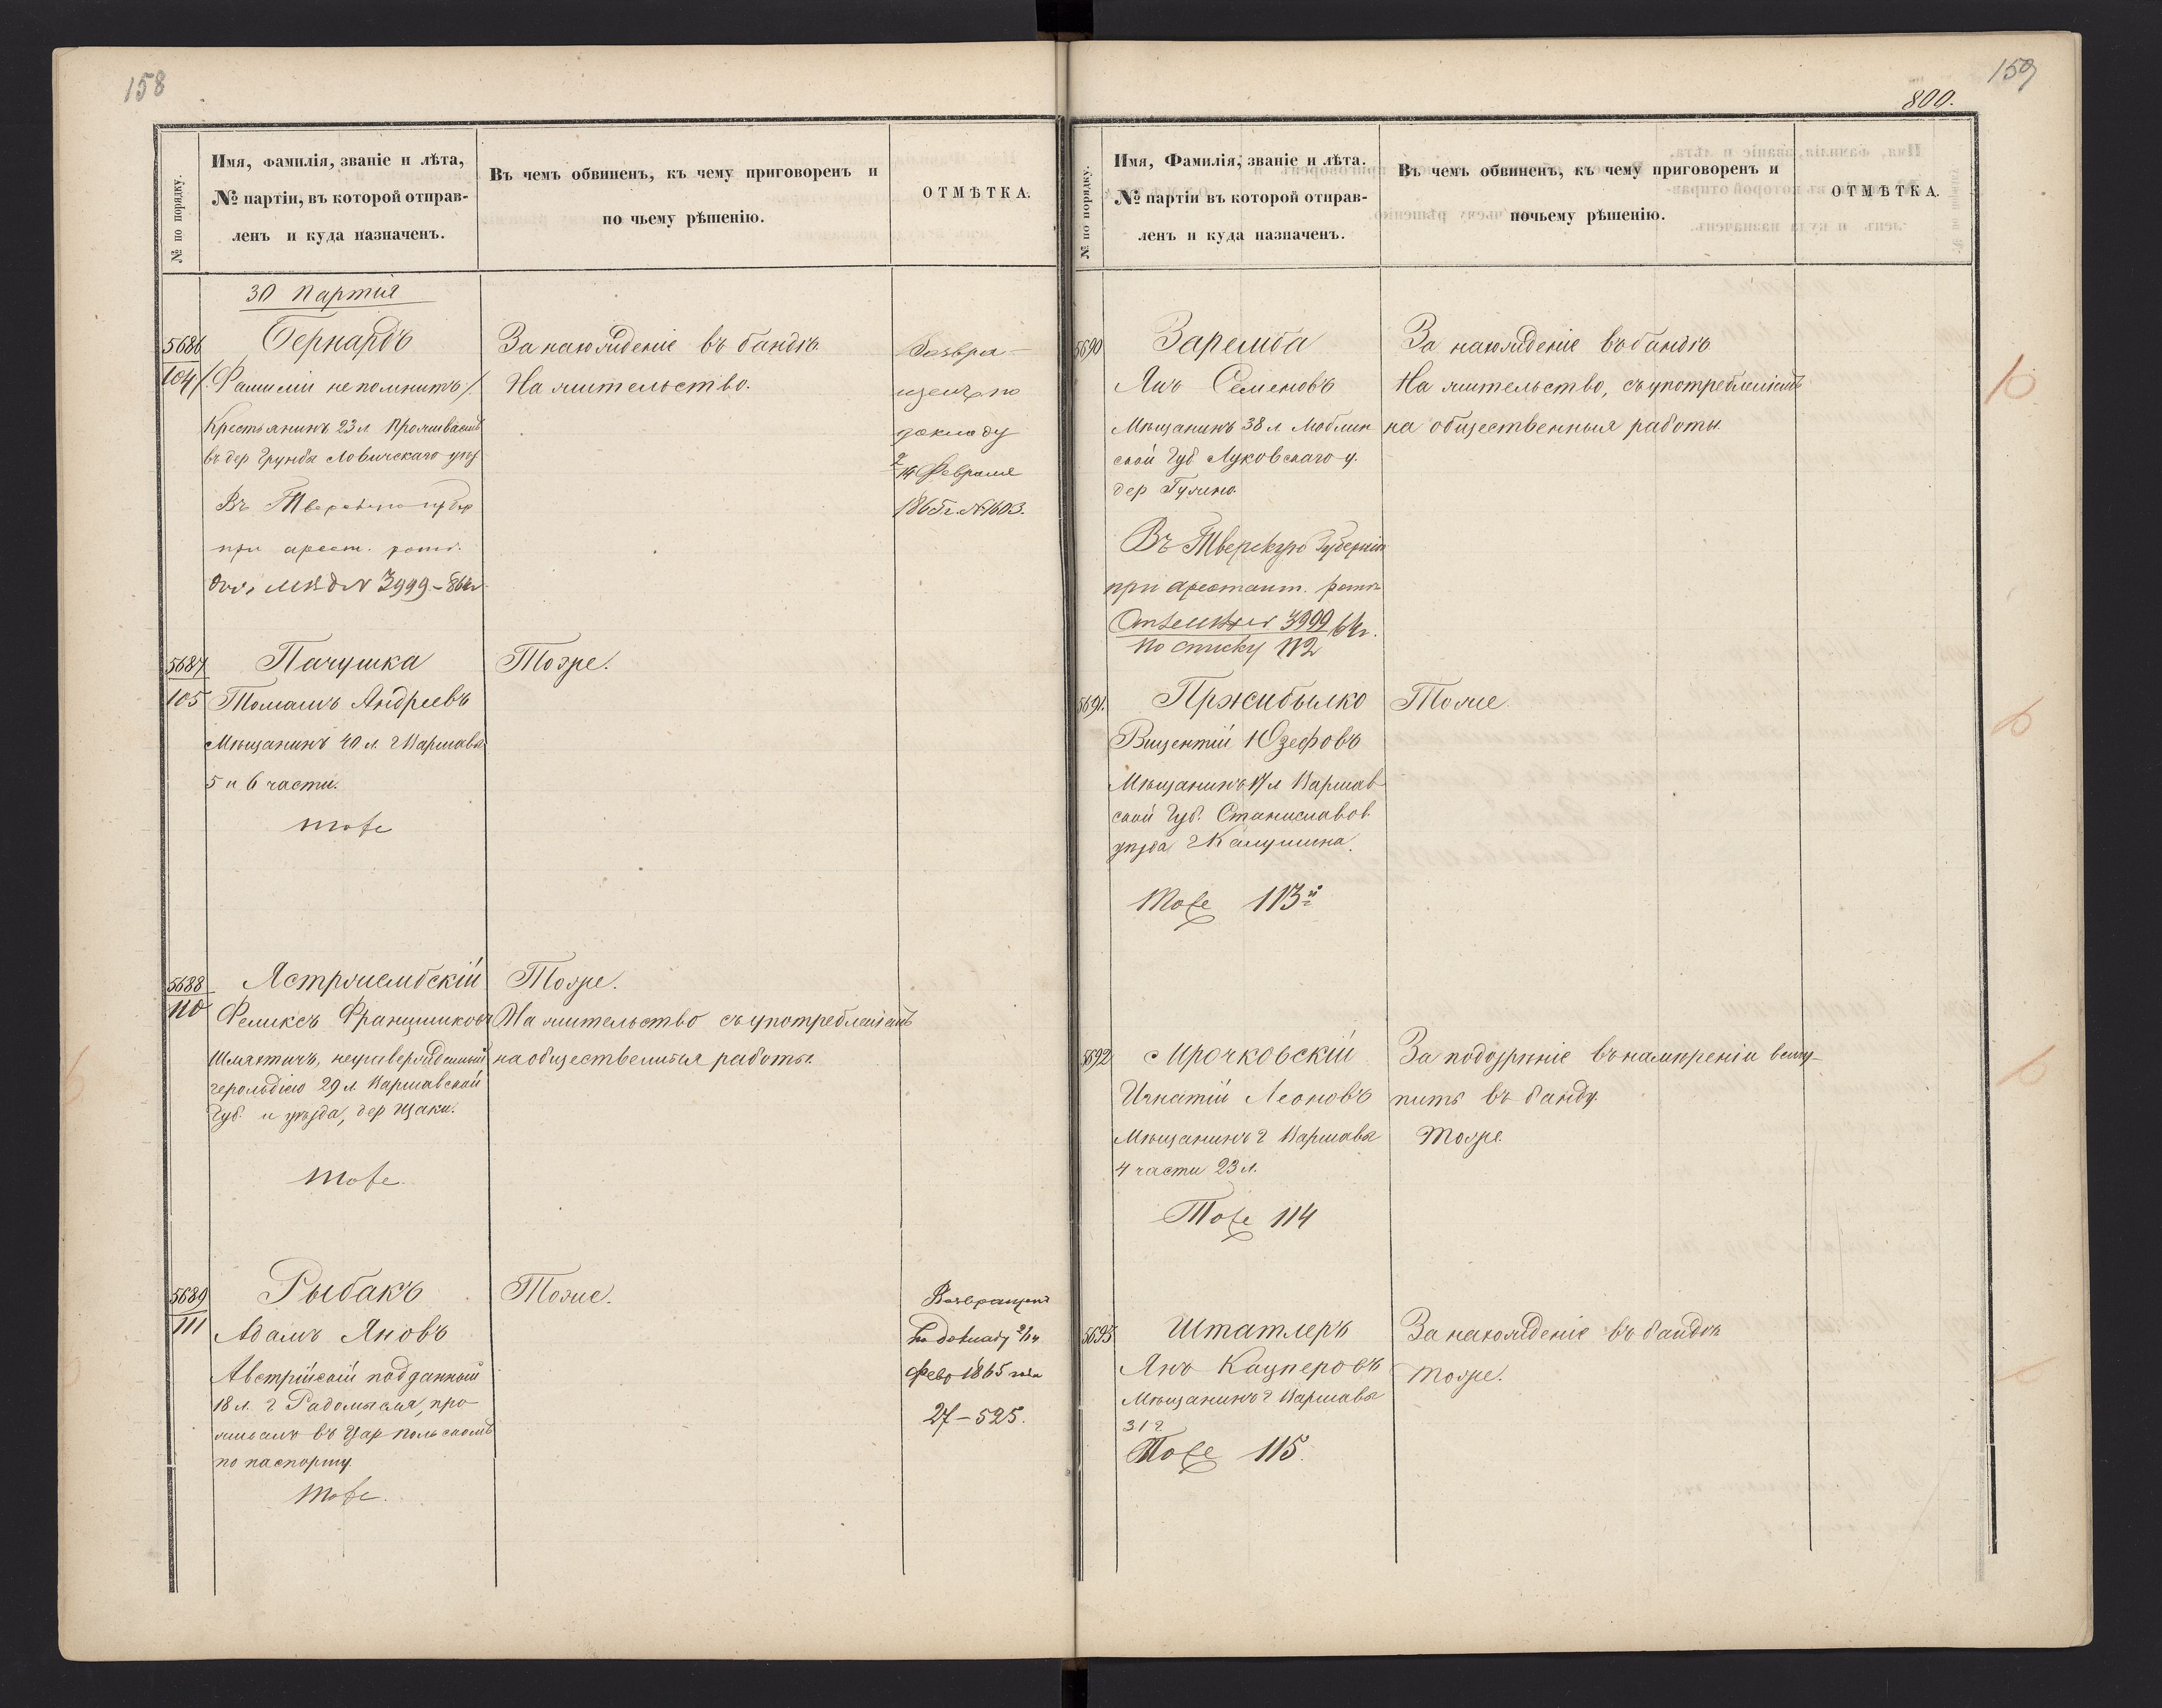 158
№ по порядку.
Имя, фамилія, званіе и лѣта,
№ партіи, въ которой отправ-
ленъ и куда назначенъ.
Въ чемъ обвиненъ, къ чему приговоренъ и
по чьему рѣшенію.
ОТМѢТКА.
30 Партія
5686
104
Бернардъ
/: Фамиліи не помнитъ :/
Крестьянинъ 23 л проживаешъ
въ дер Грунды Ловичскаго уѣз
Въ Тверскую губер
при арест. ротѣ.
3999 – 864 г
За нахожденіе въ бандѣ.
На жительство.
Возвра-
щенъ по
докладу
2/14 Февраля
1865 г. № 1603.
5687
105
Пачушка
Томашъ Андреевъ
Мѣщанинъ 40 л. г Варшавы
5 и 6 части.
тоже
Тоже.
5688
110
Ястржембскій
Феликсъ Францишковъ
Шляхтичъ, неутвержденный
герольдіею 29 л Варшавской
Губ. и уѣзда, дер Щаки.
тоже.
Тоже.
На жительство съ употребленіемъ
на общественныя работы.
5689
111
Рыбакъ
Адамъ Яновъ
Австрійскій подданный
18 л. г Радомысля, про-
живалъ въ Цар Польскомъ
по паспорту.
тоже.
Тоже.
Возвращенъ
по докладу 2/14
Февр 1865 года
27 – 525.
159
800.
№ по порядку.
Имя, Фамилія, званіе и лѣта.
№ партіи въ которой отправ-
ленъ и куда назначенъ.
Въ чемъ обвиненъ, къ чему приговоренъ и
почьему рѣшенію.
ОТМѢТКА.
5690
Заремба
Янъ Семеновъ
Мѣщанинъ 38 л Люблин
ской Губ Луковскаго у.
дер Гулино.
Въ Тверскую Губернію
при арестант. ротѣ
3999 64 г.
по списку 112
За нахожденіе въ бандѣ
На жительство, съ употребленіемъ
на общественныя работы.
5691.
Пржибылко
Вицентій Юзефовъ
Мѣщанинъ 17 л Варшав-
ской Губ. Станиславов.
уѣзда г Калушина.
Тоже 113й
Тоже.
5692
Мрочковскій
Игнатій Леоновъ
Мѣщанинъ г Варшавы
4 части 23 л.
Тоже 114
За подозрѣніе въ намѣреніи всту-
пить въ банду.
Тоже.
5693
Штатлеръ
Янъ Кацперовъ
Мѣщанинъ г Варшавы
31 г
Тоже 115.
За нахожденіе въ бандѣ
тоже.